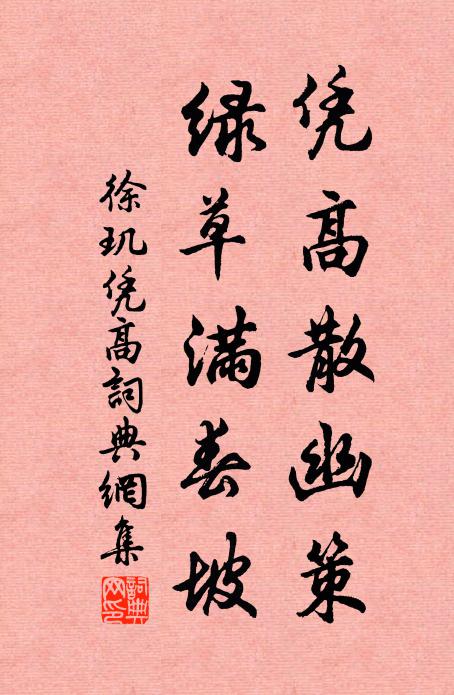 凭高散幽策
绿草满春坡
徐玑凭高詞典網集
詞典网印